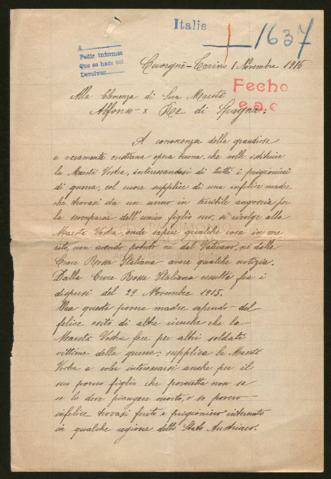 Italia
1637
Pedir informes
Que se hace con
Devolver
Cuorgnè-Torino 1 Novembre 1916
Fecho
Alla Clemenza di Sua Maestà
Alfonso X Re di Spagna.
A conoscenza della grandiosa
e veramente cristiana opera buona, che volle istituire
la Maestà Vostra, interessandosi di tutti i prigionieri
di guerra, col cuore supplice di una infelice madre
che trovasi da un anno in terribile angoscia per
la scomparsa dell'unico figlio suo, si rivolge alla
Maestà Vostra, onde sapere qualche cosa in me
rito, non avendo potuto nè dal Vaticano, nè dalla
Croce Rossa Italiana avere qualche notizia.
Dalla Croce Rossa Italiana risulta fra i
dispersi del 29 Novembre 1915.
Ora questa povera madre sapendo del
felice esito di altre ricerche che la
Maestà Vostra fece per altri soldati
vittime della guerra, supplica la Maestà
Vostra a voler interessarsi anche per il
suo povero figlio che possa
se lo deve piangere morto, o se povero
infelice trovasi ferito e prigioniero internato
in qualche regione dello Stato Austriaco.